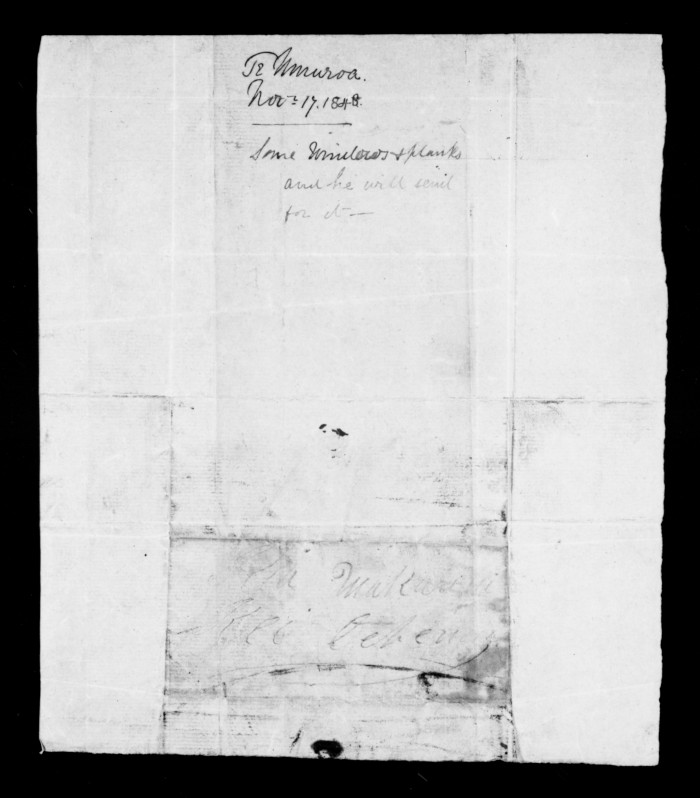 Te Umuroa.
Nov: 17. 1848.
Some Windows & planks
and he will send
for it —
Makarini